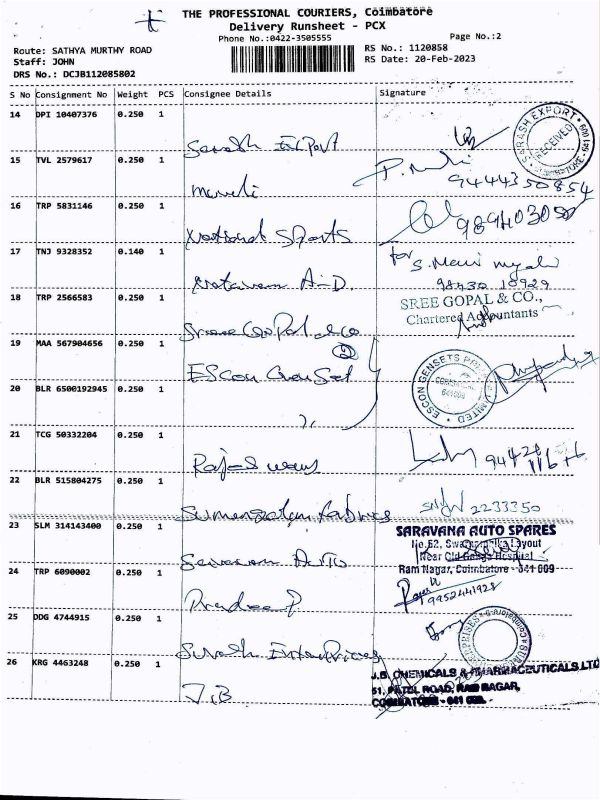 THE PROFESSIONAL COURIERS, Coimbatore
Delivery Runsheet - PCX
Phone No.:0422-3505555
Page No.:2
Route: SATHYA MURTHY ROAD
RS No.: 1120858
Staff: JOHN
RS Date: 20-Feb-2023
DRS No.: DCJB112085802
S No Consignment No Weight PCS Consignee Details Signature
14 DPI 10407376 0.250 1
Sarash Export
SARASH EXPORT RECEIVED
15 TVL 2579617 0.250 1
9444350854
16 TRP 5831146 0.250 1
National Sports
17 TNJ 9328352 0.140 1
for S.
98430 10929
18 TRP 2566583 0.250 1
Sree Gopal & Co
SREE GOPAL & CO.,
Chartered Accountants
19 MAA 567904656 0.250 1
Escon Genset
2
ESCON GENSETS PRIVATE LIMITED
20 BLR 6500192945 0.250 1
21 TCG 50332204 0.250 1
22 BLR 515804275 0.250 1
2233350
23 SLM 314143400 0.250 1
Saravana Auto
SARAVANA AUTO SPARES
No.62, Layout
Near Old Hospital
Ram Nagar, Coimbatore - 641 009
24 TRP 6090002 0.250 1
Pradeep P
9952441928
25 DDG 4744915 0.250 1
Enterprises
26 KRG 4463248 0.250 1
J.B
J.B. CHEMICALS & PHARMACEUTICALS LTD
51, PATEL ROAD, RAM NAGAR,
COIMBATORE - 641 009.